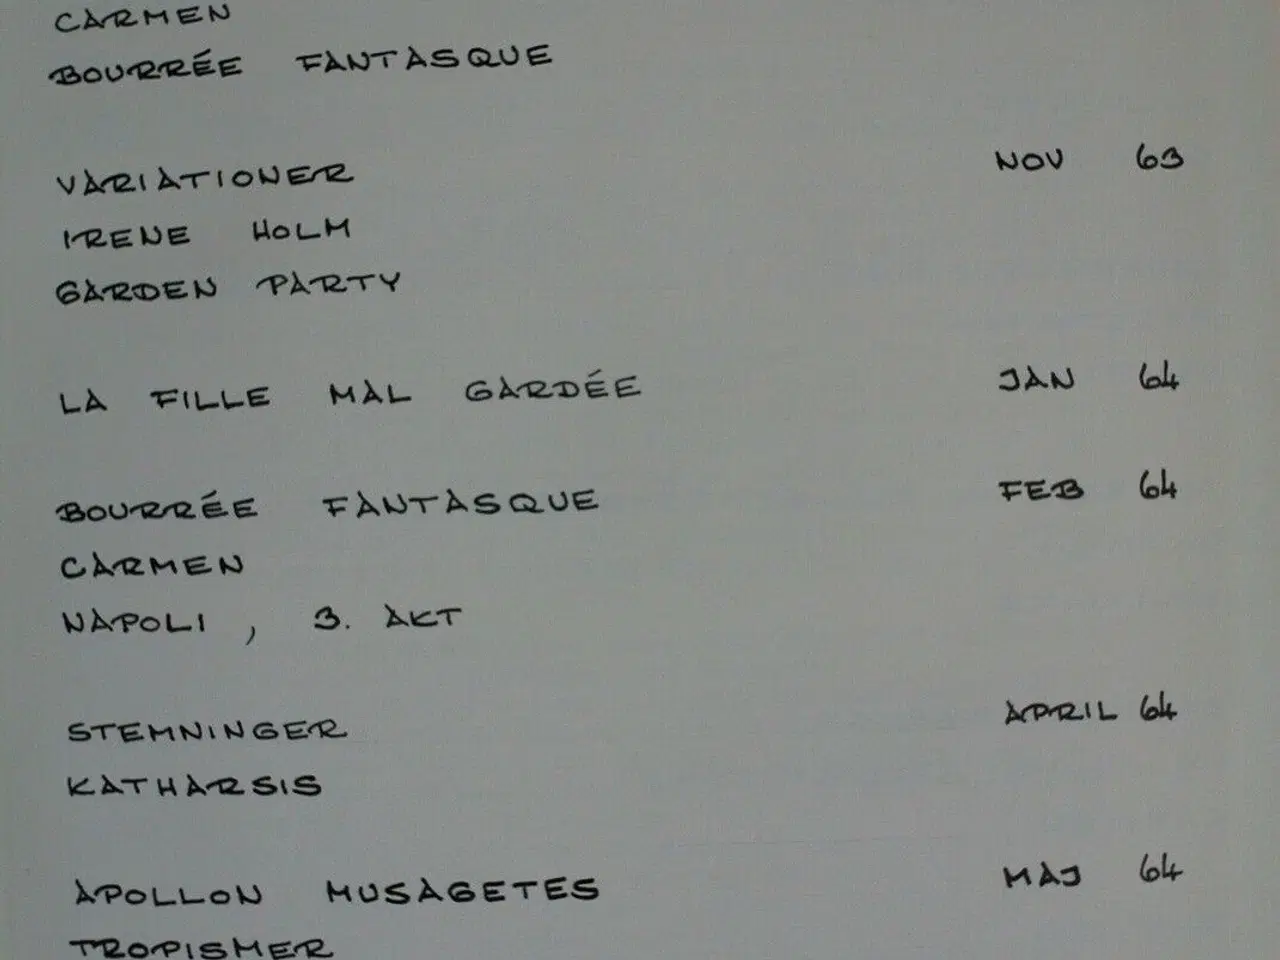 CARMEN
BOURRÉE FANTASQUE
VARIATIONER NOV 63
IRENE HOLM
GARDEN PARTY
LA FILLE MAL GARDÉE JAN 64
BOURRÉE FANTASQUE FEB 64
CARMEN
NAPOLI , 3. AKT
STEMNINGER APRIL 64
KATHARSIS
APOLLON MUSAGETES MAJ 64
TROPISMER